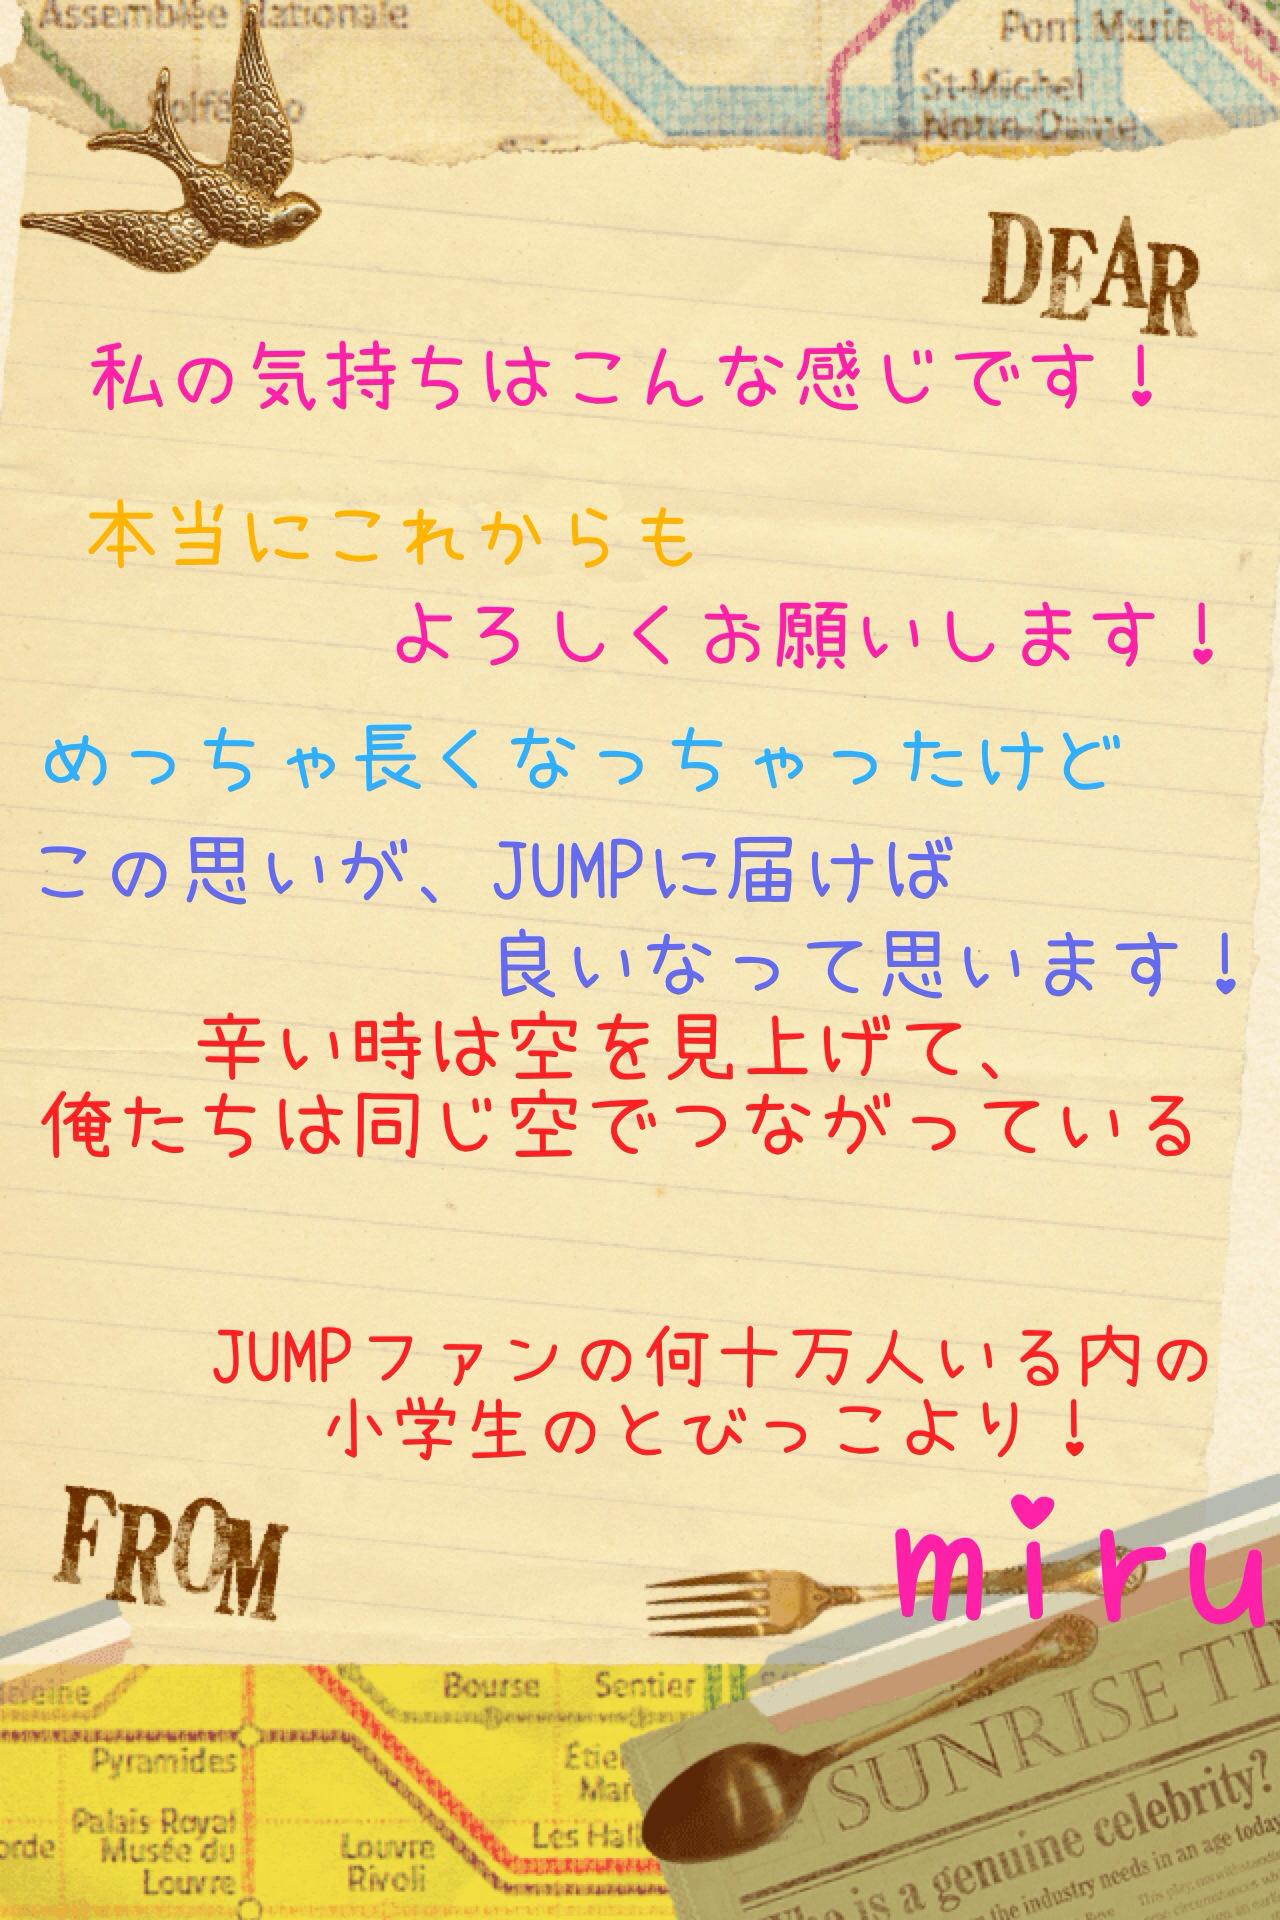 Assemblée Nationale
Pont Marie
St-Michel
Notre-Dame
DEAR
私の気持ちはこんな感じです!
本当にこれからも
よろしくお願いします!
めっちゃ長くなっちゃったけど
この思いが、JUMPに届けば
良いなって思います!
辛い時は空を見上げて、
俺たちは同じ空でつながっている
JUMPファンの何十万人いる内の
小学生のとびっこより!
FROM
miru
Bourse
Sentier
Pyramides
Palais Royal
Musée du
Louvre
Louvre
Rivoli
Les Hall
SUNRISE TI
is a genuine celebrity?
the industry needs in an age today